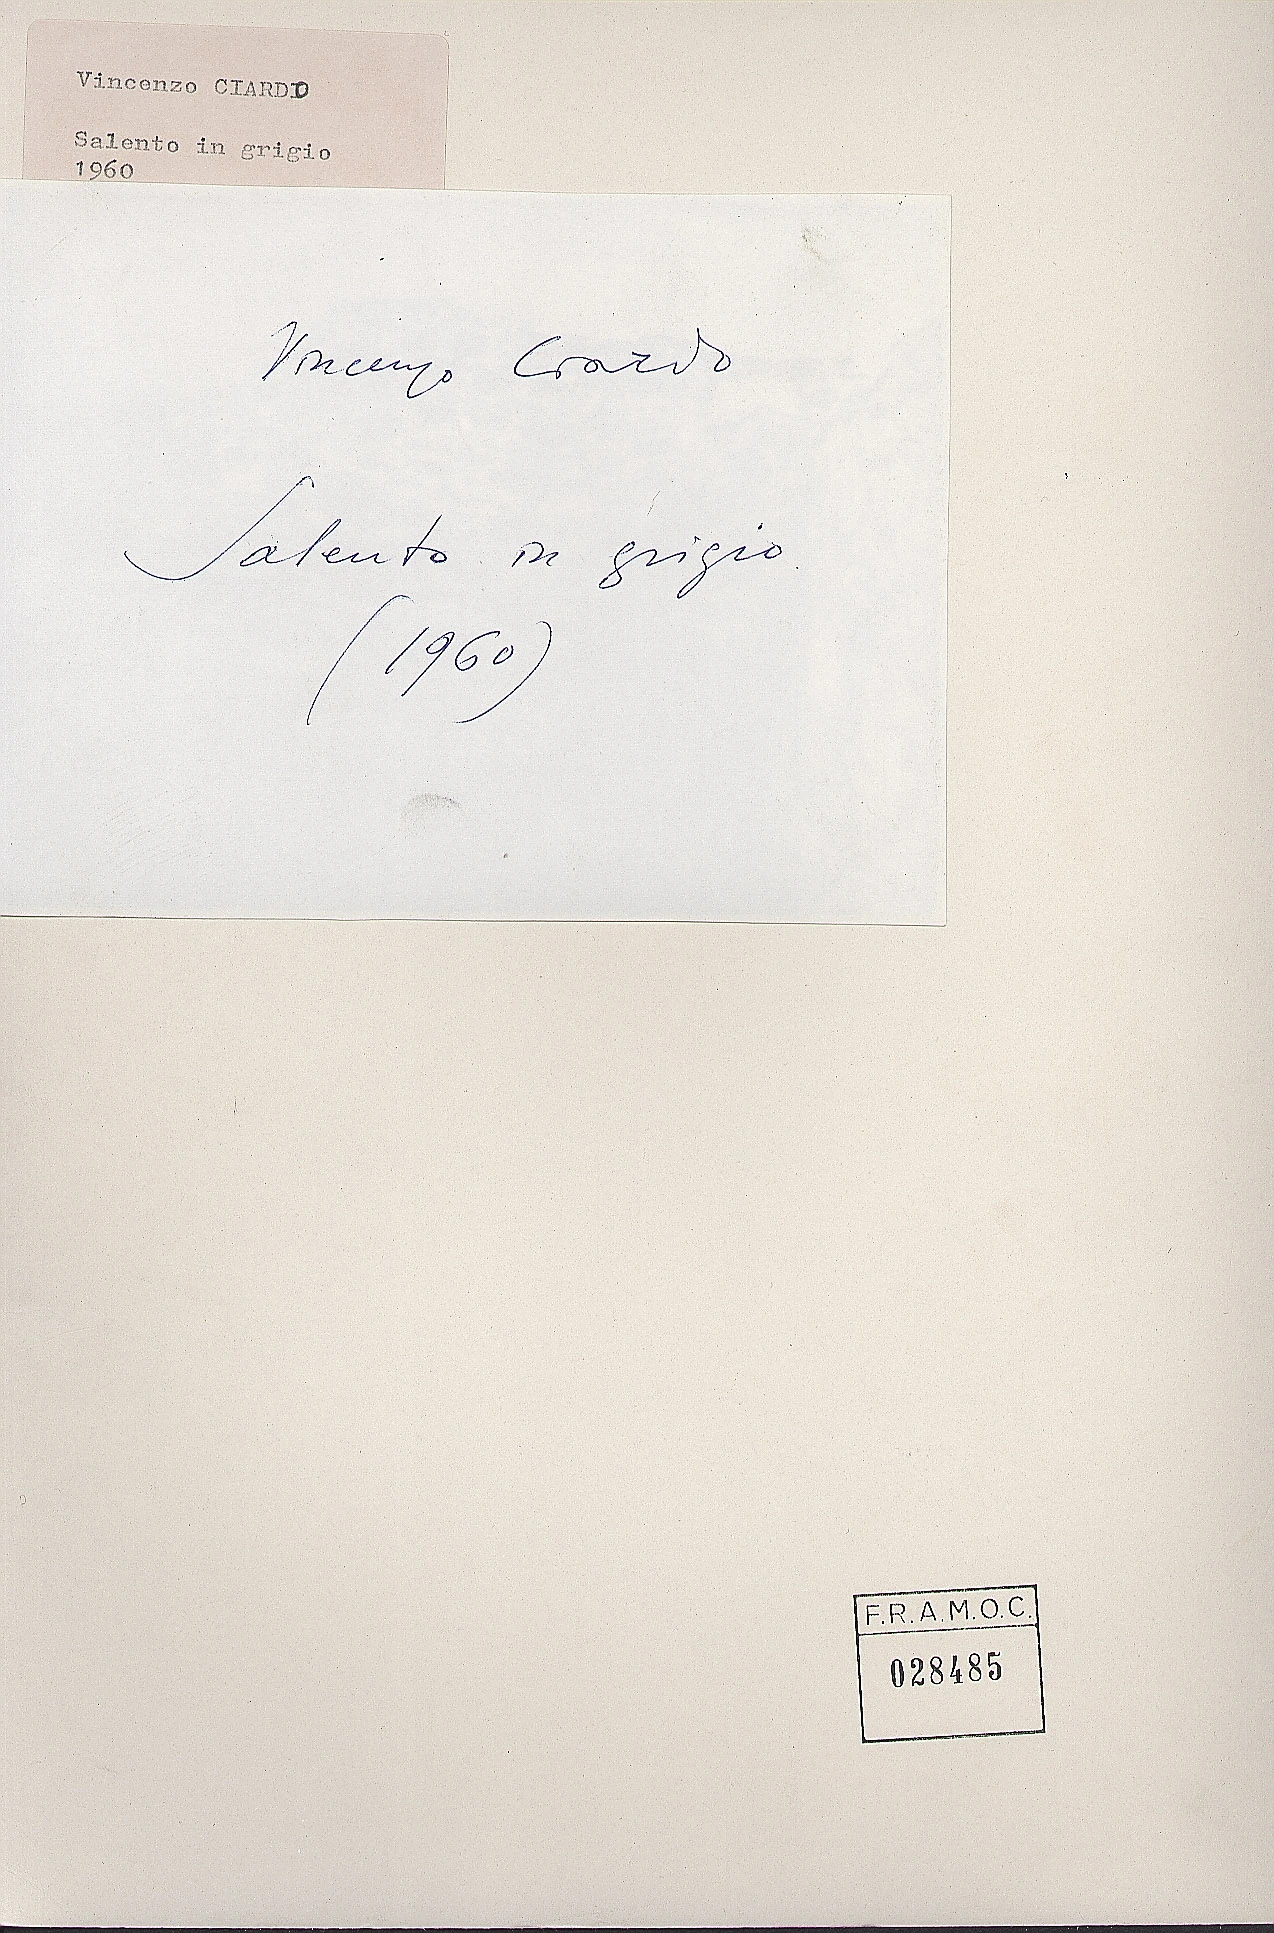 Vincenzo CIARDO
Salento in grigio
1960
Vincenzo Ciardo
Salento in grigio
(1960)
F.R.A.M.O.C.
028485